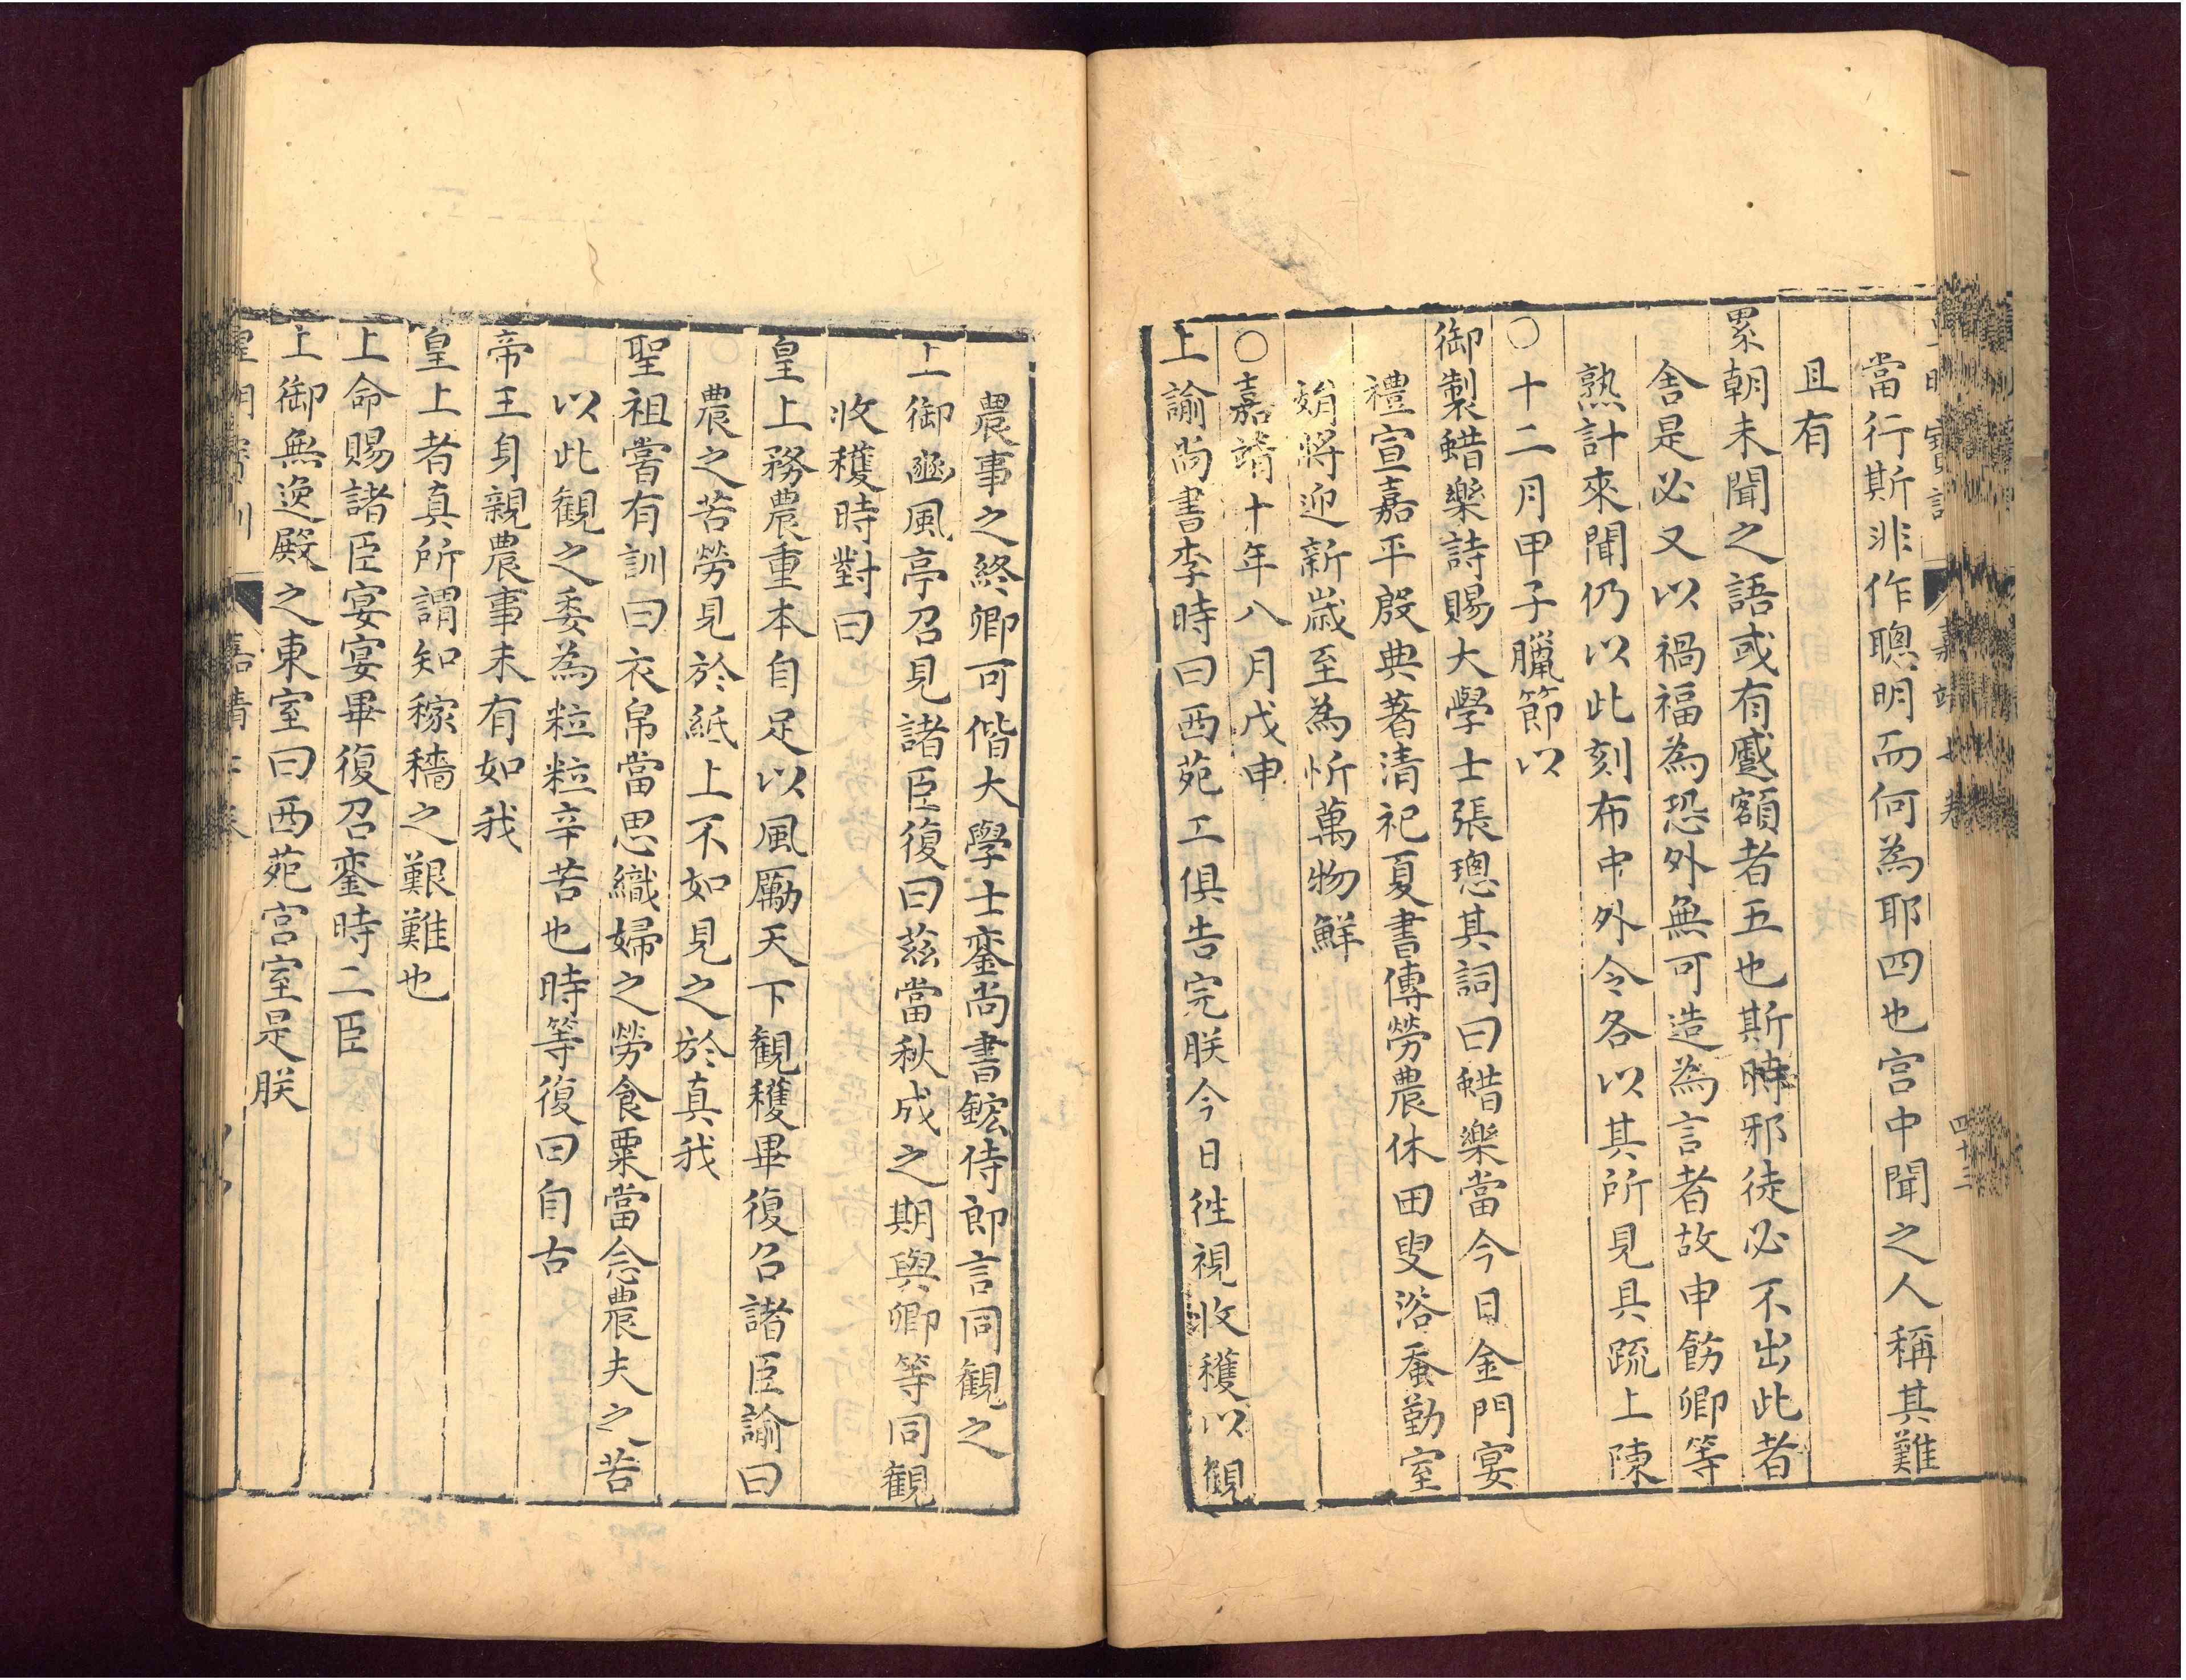 當行斯非作聰明而何為耶四也宫中聞之人稱其難
且有
累朝未聞之語或有蹙額者五也斯時邪徒必不出此者
舍是必又以禍福為恐外無可造為言者故申飭卿等
熟計來聞仍以此刻布中外令各以其所見具疏上陳
○十二月甲子臘節以
御製蜡樂詩賜大學士張璁其詞曰蜡樂當今日金門宴
禮宣嘉平殷典著清祀夏書傳勞農休田叟浴蚕勤室
娟將迎新歲至為忻萬物鮮
○嘉靖十年八月戊申
上諭尚書李時曰西苑工俱告完朕今日徃視收穫以觀
農事之終卿可偕大學士鑾尚書鋐侍郎言同觀之
上御豳風亭召見諸臣復曰茲當秋成之期與卿等同觀
收穫時對曰
皇上務農重本自足以風勵天下觀穫畢復召諸臣諭曰
農之苦勞見於紙上不如見之於真我
聖祖嘗有訓曰衣帛當思織婦之勞食粟當念農夫之苦
以此觀之委為粒粒辛苦也時等復曰自古
帝王身親農事未有如我
皇上者真所謂知稼穡之艱難也
上命賜諸臣宴宴畢復召鑾時二臣
上御無逸殿之東室曰西苑宫室是朕